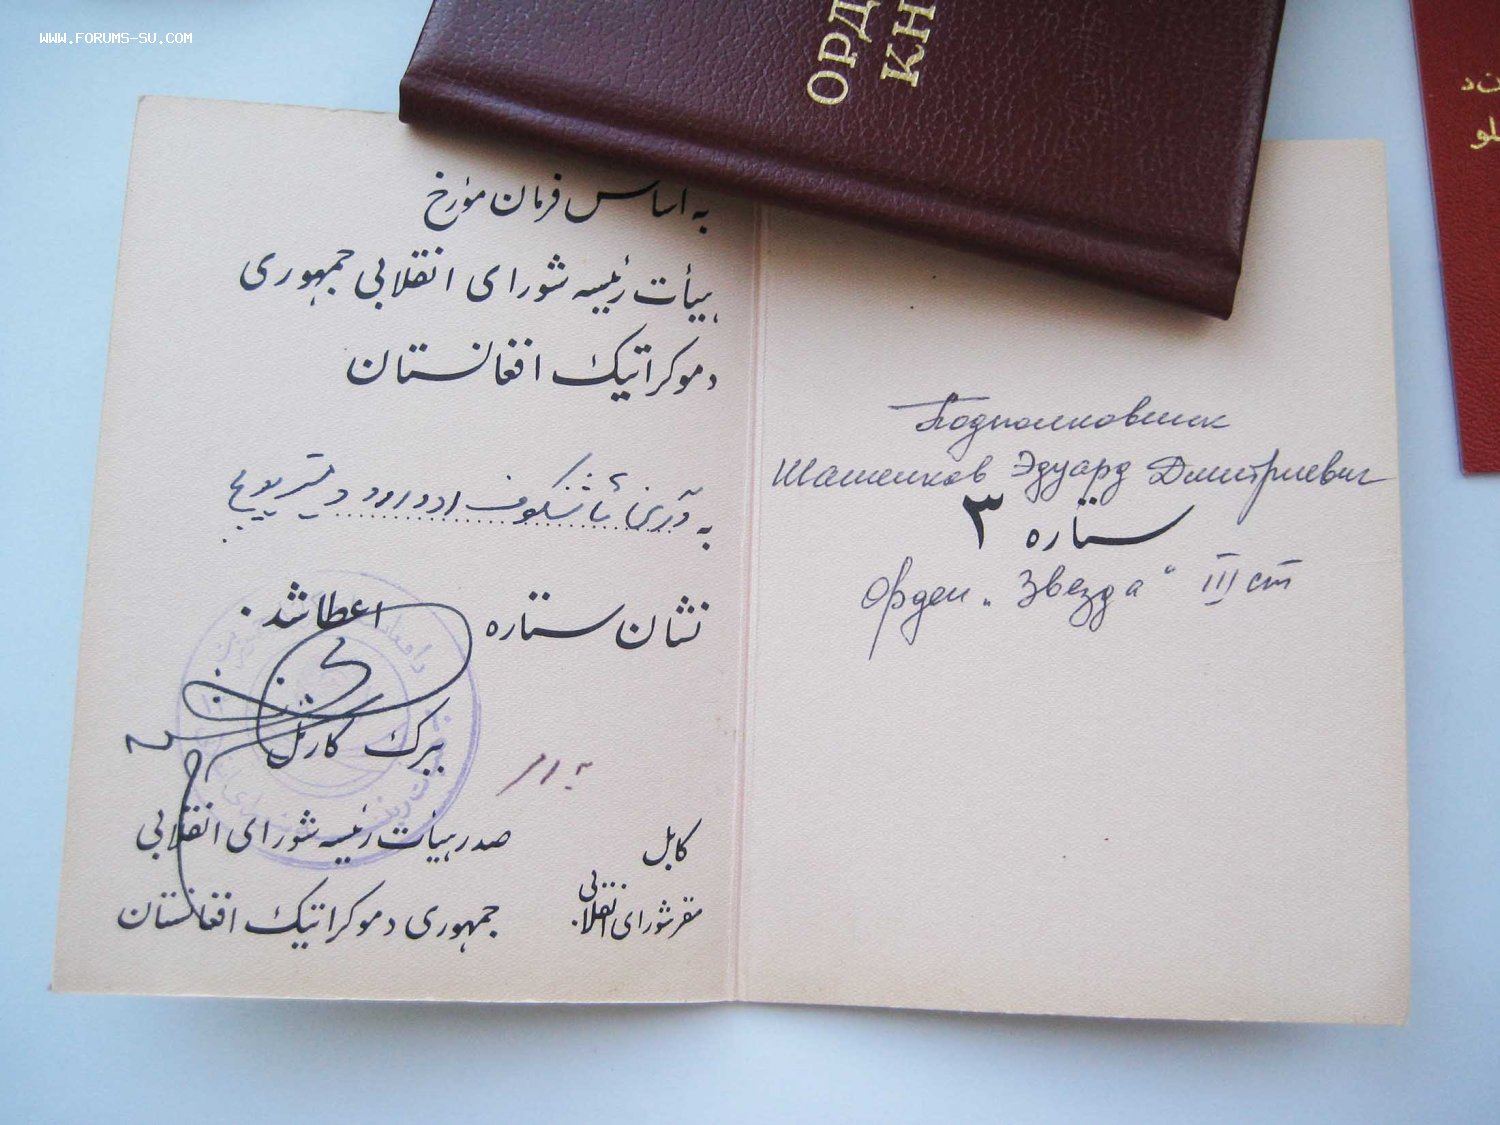 WWW.FORUMS-SU.COM
ОРД
КН
به اساس فرمان مؤرخ
هیأت رئیسه شورای انقلابی جمهوری
دموکراتیک افغانستان
به
نشان ستاره اعطا شد.
ببرک کارمل
صدر هیأت رئیسه شورای انقلابی
جمهوری دموکراتیک افغانستان
کابل
مقر شورای انقلابی
Подполковник
Шашенков Эдуард Дмитриевич
ستاره ۳
Орден „Звезда“ III ст